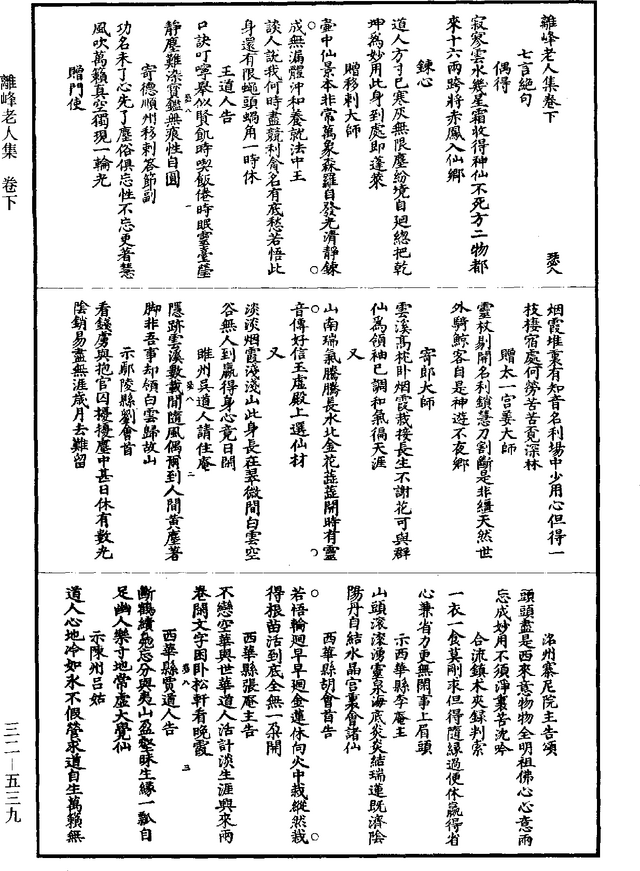 離峰老人集卷下
瑟八
七言絕句
偶得
寂寥雲水幾星霜收得神仙不死方二物都
來十六兩跨將赤鳳入仙鄉
鍊心
道人方寸已寒灰無限塵紛境自迴總把乾
坤為妙用此身到處即蓬萊
贈移剌大師
壺中仙景本非常萬象森羅自發光清靜鍊
成無漏體沖和養就法中王
談人說我何時盡競利貪名有底愁若悟此
身還有限蠅頭蝸角一時休
王道人告
口訣叮嚀舉似賢飢時喫飯倦時眠靈臺瑩
靜塵難染寶鑑無痕性自圓
寄德順州移剌荅節副
功名未了心先了塵俗俱忘性不忘更著慧
風吹萬籟真空獨現一輪光
贈門使
離峰老人集 卷下
烟霞堆裏有知音名利場中少用心但得一
枝棲宿處何勞苦苦覓深林
贈太一宮姜大師
靈杖剔開名利鎖慧刀割斷是非繮天然世
外騎鯨客自是神遊不夜鄉
寄郎大師
雲溪高枕卧烟霞栽接長生不謝花可與群
仙為領袖已調和氣徧天涯
又
山南瑞氣騰騰長水北金花蕋蕋開時有靈
音傳好信玉虛殿上選仙材
又
淡淡烟霞淺淺山此身長在翠微間白雲空
谷無人到贏得身心竟日閑
睢州吳道人請住庵
隱跡雲溪數載閒隨風偶爾到人間黃塵著
脚非吾事却領白雲歸故山
示鄢陵縣劉會首
看錢虜與抱官囚擾擾塵中甚日休有數光
陰銷易盡無涯歲月去難留
洺州寨尼院主告頌
頭頭盡是西來意物物全明祖佛心心意兩
忘成妙用不須淨裏苦沈吟
合流鎮木夾録判索
一衣一食莫剛求但得隨緣過便休贏得省
心兼省力更無閑事上眉頭
示西華縣李庵主
山頭滾滾湧靈泉海底炎炎結瑞蓮既濟陰
陽丹自結水晶宮裏會諸仙
西華縣胡會首告
若悟輪迴早早迴金蓮休向火中栽縱然栽
得根苗活到底全無一朵開
西華縣張庵主告
不戀空華與世華道人活計淡生涯興來兩
卷閑文字困卧松軒看晚霞
西華縣賈道人告
斷鶴續鳧忘分與夷山盈壑昧生緣一瓢自
足幽人樂寸地常虛大覺仙
示陳州呂姑
道人心地冷如氷不假營求道自生萬籟無
三二－五三九